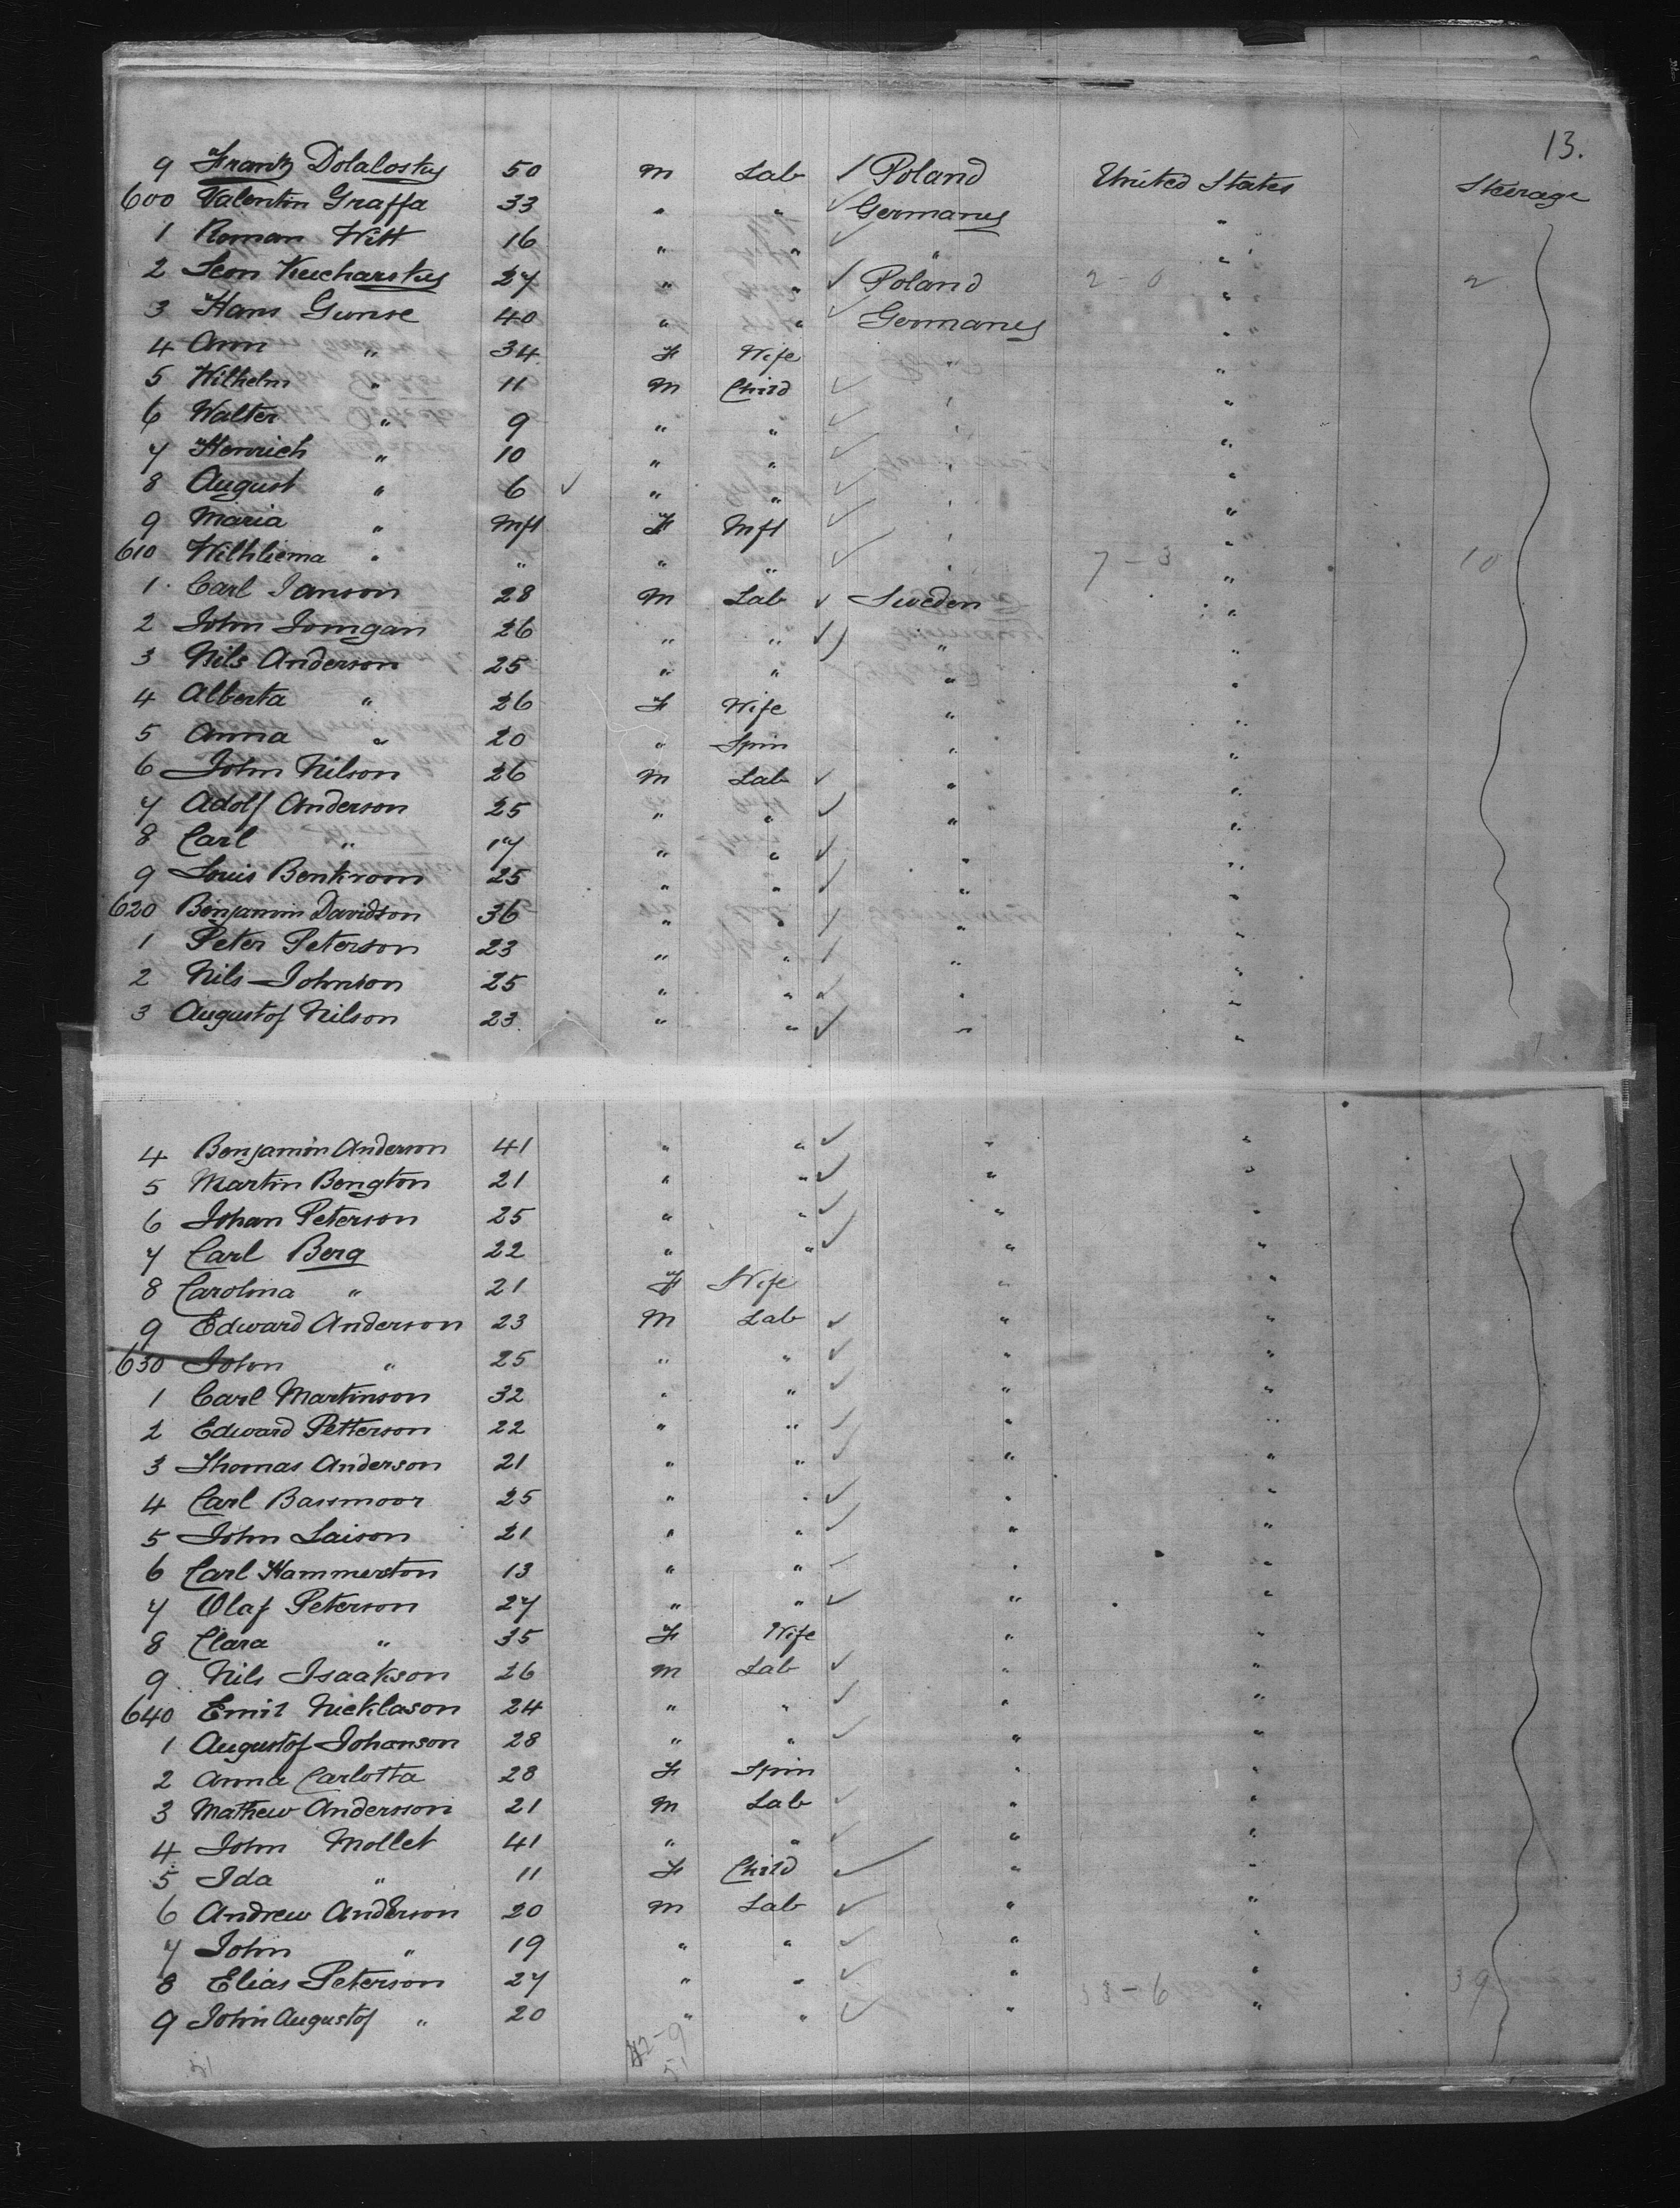 13.
9 Frantz Dolalosky 50 M Lab / Poland United States Steerage
600 Valentin Graffa 33 " " ✓ Germany "
1 Roman Witt 16 " " ✓ " "
2 Leon Kucharsky 27 " " ✓ Poland 2 0 " 2
3 Hans Gunse 40 " " ✓ Germany "
4 Ann " 34 F Wife " "
5 Wilhelm " 11 M Child ✓ " "
6 Walter " 9 " " ✓ " "
7 Henrich " 10 " " ✓ " "
8 August " 6 ✓ " " ✓ " "
9 Maria " Inft F Inft ✓ " "
610 Wilhliema " " " " ✓ " 7 - 3 " 10
1 Carl Janson 28 M Lab ✓ Sweden "
2 John Jomgan 26 " " ✓ " "
3 Nils Anderson 25 " " " "
4 Alberta " 26 F Wife " "
5 Anna " 20 " Spin " "
6 John Nilson 26 M Lab ✓ " "
7 Adolf Anderson 25 " " ✓ " "
8 Carl " 17 " " ✓ " "
9 Louis Benkrom 25 " " ✓ " "
620 Benjamin Davidson 36 " " ✓ " "
1 Peter Peterson 23 " " ✓ " "
2 Nils Johnson 25 " " ✓ " "
3 Augustof Nilson 23 " " ✓ " "
4 Benjamin Anderson 41 " " ✓ " "
5 Martin Bengton 21 " " ✓ " "
6 Johan Peterson 25 " " ✓ " "
7 Carl Berg 22 " " ✓ " "
8 Carolina " 21 F Wife " "
9 Edward Anderson 23 M Lab ✓ " "
630 John " 25 " " ✓ " "
1 Carl Martinson 32 " " ✓ " "
2 Edward Petterson 22 " " ✓ " "
3 Thomas Anderson 21 " " ✓ " "
4 Carl Bassmoor 25 " " ✓ " "
5 John Laison 21 " " ✓ " "
6 Carl Hammerston 13 " " ✓ " "
7 Olaf Peterson 27 " " ✓ " "
8 Clara " 35 F Wife " "
9 Nils Isaakson 26 M Lab ✓ " "
640 Emil Nicklason 24 " " ✓ " "
1 Augustof Johanson 28 " " ✓ " "
2 Anna Carlotta 28 F Spin " "
3 Mathew Andersson 21 M Lab ✓ " "
4 John Mollet 41 " " ✓ " "
5 Ida " 11 F Child ✓ " "
6 Andrew Anderson 20 M Lab ✓ " "
7 John " 19 " " ✓ " "
8 Elias Peterson 27 " " ✓ " 33 - 6 " 39
9 John Augustof " 20 " " ✓ " "
51 42-9
51